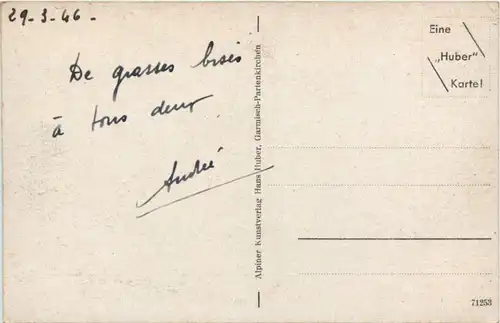 29-3-46-
De grasses bises
à tous deux
André
Alpiner Kunstverlag Hans Huber, Garmisch-Partenkirchen
Eine
„Huber"
Karte!
71253